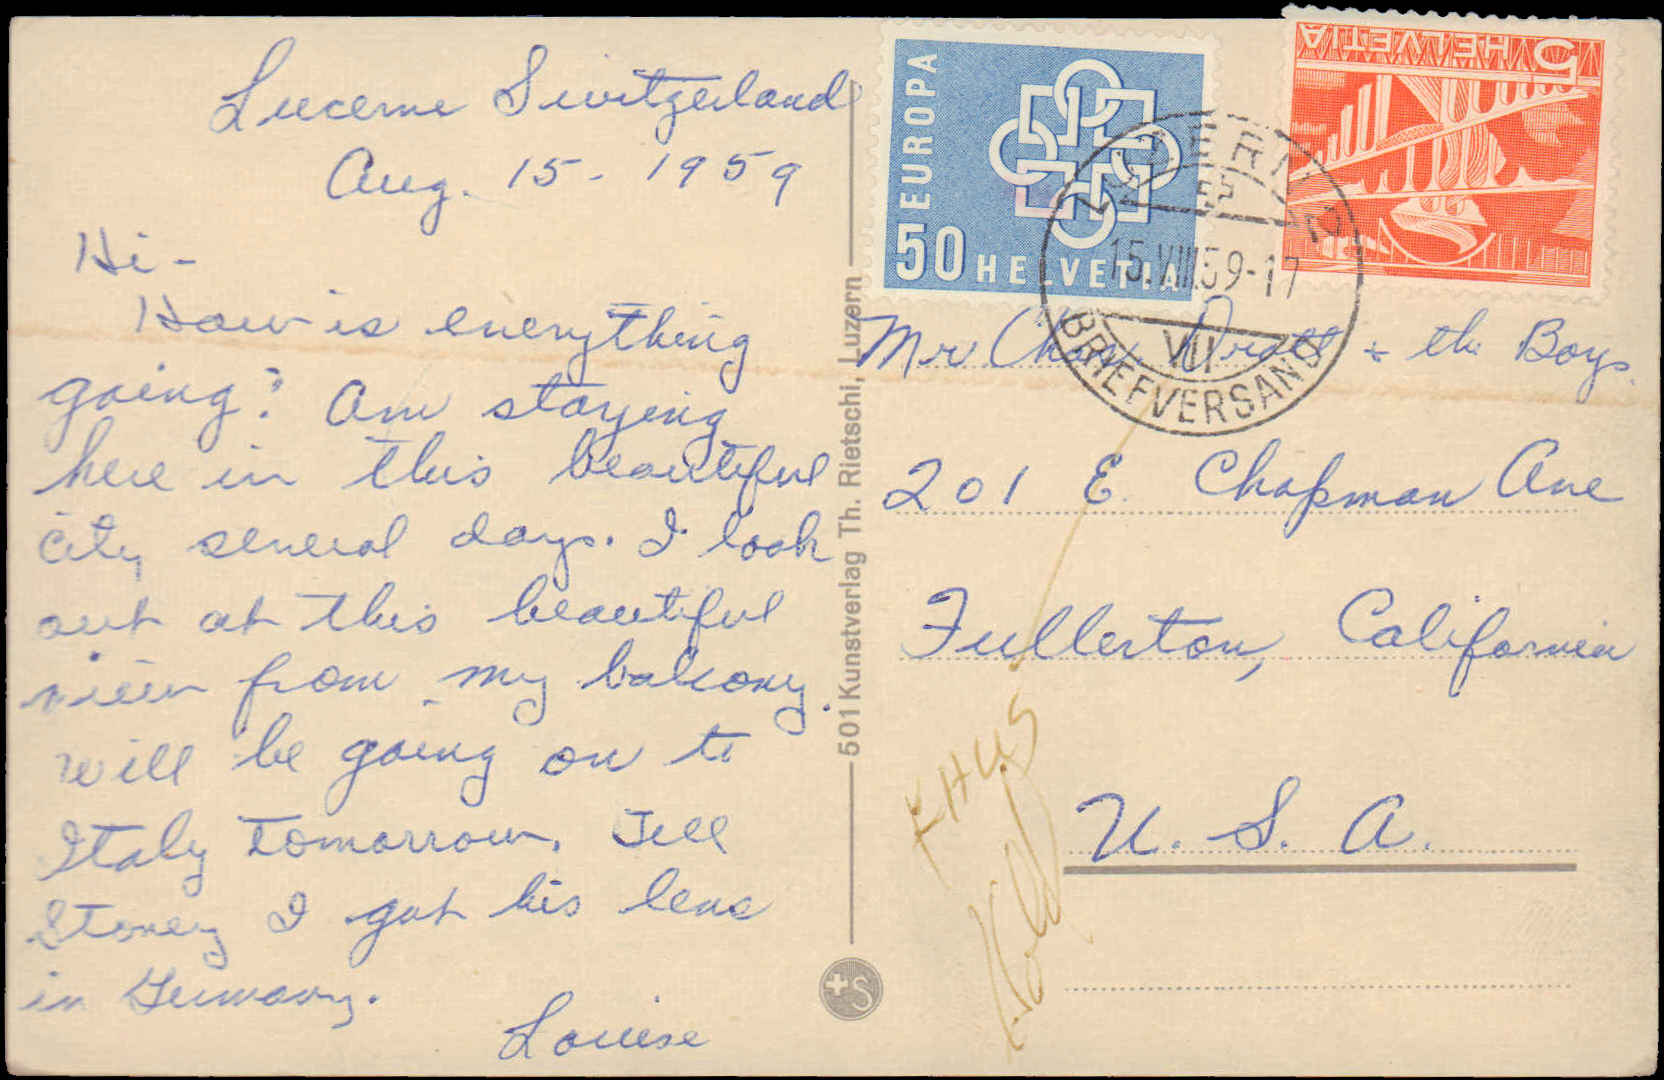 Lucerne Switzerland
Aug. 15 - 1959
Hi -
How is everything
going? Am staying
here in this beautiful
city several days. I look
out at this beautiful
view from my balcony.
Will be going on to
Italy tomorrow. Tell
Stoney I got his lens
in Germany.
Louise
501 Kunstverlag Th. Rietschi, Luzern
+S
EUROPA
50 HELVETIA
5 HELVETIA
LUZERN 2
15.VIII.59-17
VII
BRIEFVERSAND
Mr Chas. & the Boys.
201 E. Chapman Ave
Fullerton, California
U. S. A.